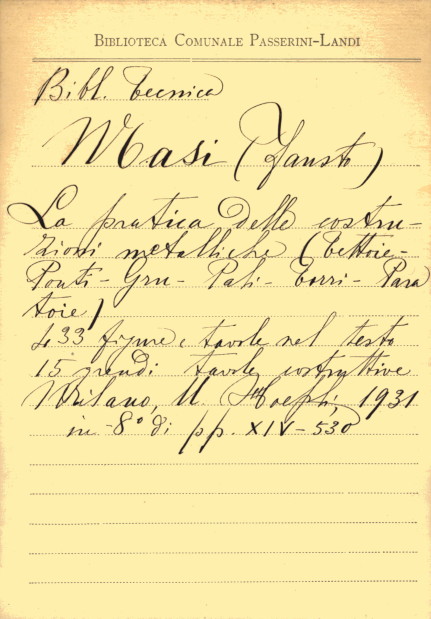 BIBLIOTECA COMUNALE PASSERINI-LANDI
Bibl. Tecnica
Masi (Fausto)
La pratica delle costru-
zioni metalliche (Tettoie-
Ponti - Gru - Pali - Torri - Para
toie)
433 figure e tavole nel testo
15 grandi tavole costruttive
Milano, U. Hoepli, 1931
in-8° di pp. XIV-530